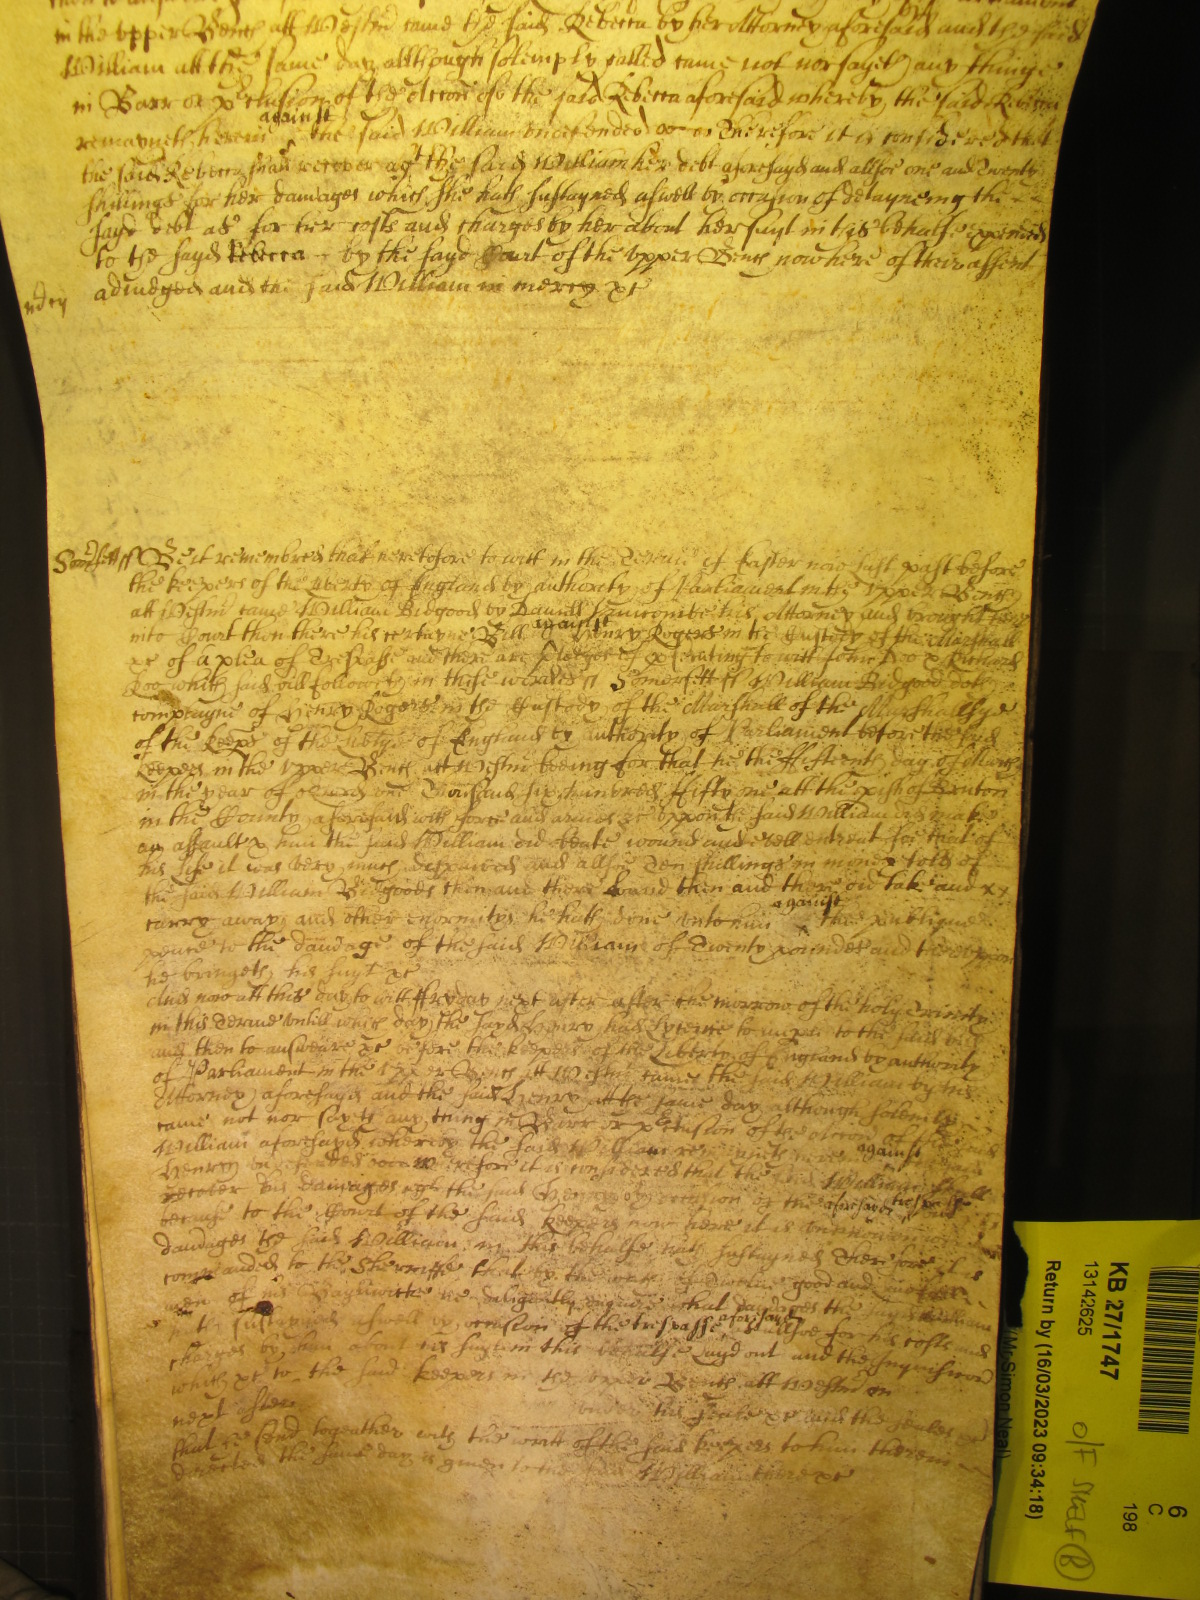 in the vpper Bench att Westm came the said Rebecca by her Attorney aforesaid and the said
William att the same day allthough solemply called came not nor sayeth any thinge
in Barr or of the accon of the said Rebecca aforesaid whereby the said Rebecca
remayneth herein against the said William vndefended Therefore it is considered that
the said Rebecca shall recover agt the said William her debt aforesayd and allsoe one and Twenty
shillings for her damages which she hath sustayned aswell by occasion of detayneing the
sayd debt as for her costs and charges by her about her suyt in this behalfe expended
to the sayd Rebecca by the sayd Court of the vpper Bench now here of their assent
adiudged and the said William in mercy &c
Somersett ss Be it remembred that heretofore to witt in the Terme of Easter now last past before
the keepers of the liberty of England by authority of Parliament in the Vpper Bench
att Westm came William Bidgood by Daniell his Attorney and brought here
into Court then there his certayne Bill against Henry Rogers in the Custody of the Marshall
&c of a plea of Trespasse and there are pledges of to witt John Doo & Richard
Roo which said bill followeth in these wordes ss Somersett ss William Bidgood doth
complayne of Henry Rogers in the Custody of the Marshall of the Marshallsye
of the keeps of the Libtye of England by authority of Parliament before the said
keepers in the Vpper Bench att Westm beeing for that he the ffifteenth day of March
in the year of our Lord one Thousand six hundred ffifty one att the pish of Bruton
in the County aforesaid with force and armes &c vppon the said William did make
an assault & him the said William did beate wound and evill entreat soe that of
his life it was very much dispaired and allsoe Ten shillings in money told of
the said William Bidgoods then and there found then and there did take and
carry away and other enormitys he hath done vnto him against the publique
peace to the damage of the said William of Twenty poundes and therevppon
he bringeth his suyt &c
And now att this day to witt ffryday next after the morrow of the holy Trinity
in this Terme vntill which day the sayd Henry had lycence to imparl to the said bill
and then to answeare &c before the keepers of the Liberty of England by authority
of Parliament in the Vpper Bench att Westm came the said William by his
Attorney aforesayd and the said Henry att the same day although solemnly
came not nor sayth any thing in Barr or of the accon of the said
William aforesayd whereby the said William remayneth here against the said
Henry vndefended Wherefore it is considered that the said William shall
recover his damages agt the said Henry by occasion of the aforesaid trespasse and
because to the Court of the said keepers now here it is vnknowne
damages the said William in this behalfe hath sustayned Therefore it is
commanded to the Sherriffe that by the oath of twelve good and lawfull
men of his Bayliwicke he diligently enquire what damages the sayd William
hath sustayned aswell by occasion of the trespasse aforesaid as allsoe for his costs and
charges by him about his suyt in this behalfe layd out and the Inquisicon
which &c to the said keepers in the vpper Bench att Westm on
next after vnder his seale &c and the seales
that he send togeather with the writt of the said keepers to him therein
directed the same day is given to the said William there &c
KB 27/1747
13142625
Return by (16/03/2023 09:34:18)
(Mr Simon Neal)
6
C
198
O/F SHELF (B)